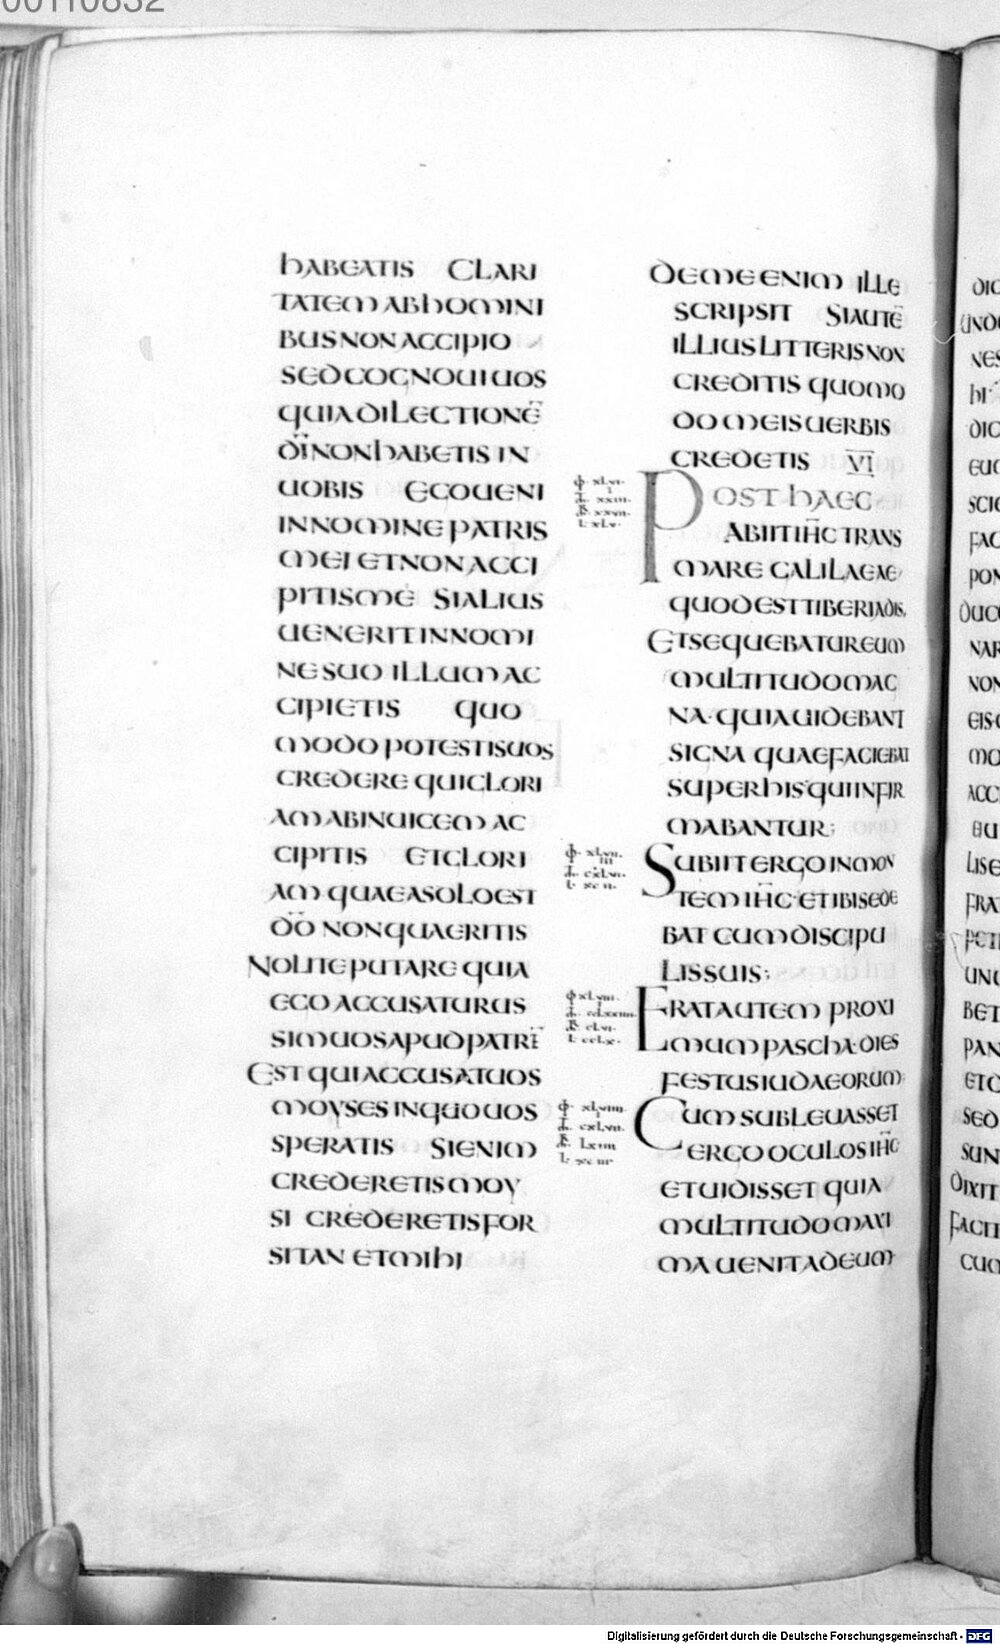 00110832
habeatis clari
tatem ab homini
bus non accipio
sed cognoui uos
quia dilectionē
dī non habetis in
uobis ego ueni
in nomine patris
mei et non acci
pitis me si alius
uenerit in nomi
ne suo illum ac
cipietis quo
modo potestis uos
credere qui glori
am ab inuicem ac
cipitis et glori
am quae a solo est
dō non quaeritis
Nolite putare quia
ego accusaturus
sim uos apud patrē
Est qui accusat uos
moyses in quo uos
speratis si enim
crederetis moy
si crederetis for
sitan et mihi
de me enim ille
scripsit si autē
illius litteris non
creditis quomo
do meis uerbis
credetis VI
Post haec
abiit ihc trans
mare galilaeae
quod est tiberiadis
Et sequebatur eum
multitudo mag
na · quia uidebant
signa quae faciebat
super his qui infir
mabantur ;
Subiit ergo in mon
tem ihc · et ibi sede
bat cum discipu
lis suis ;
Erat autem proxi
mum pascha · dies
festus iudaeorum
Cum subleuasset
ergo oculos ihc
et uidisset quia
multitudo maxi
ma uenit ad eum
Digitalisierung gefördert durch die Deutsche Forschungsgemeinschaft - DFG